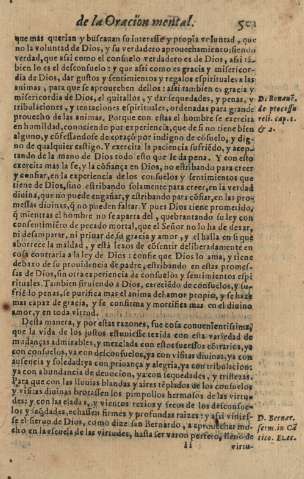 de la Oracion mental. 501
que mas querian y buscauan su interesse y propia voluntad, que
no la voluntad de Dios, y su verdadero aprouechamiento: siendo
verdad, que assi como el consuelo verdadero es de Dios, assi tã
bien lo es el desconsuelo: y que assi como es gracia y misericor-
dia de Dios, dar gustos y sentimientos y regalos espirituales a las
animas, para que se aprouechen dellos: assi tambien es gracia y
misericordia de Dios, el quitallos, y dar sequedades, y penas, y
tribulaciones, y tentaciones espirituales, ordenadas para grande
prouecho de las animas. Porque con estas el hombre se exercita
en humildad, conosciendo por experiencia, que de si no tiene bien
alguno, y cõfessandose de coraçõ por indigno de cõsuelo, y dig-
no de qualquier castigo. Y exercita la paciencia sufriẽdo, y acep-
tando de la mano de Dios todo esto que le da pena. Y con esto
exercita mas la fe, y la cõfiança en Dios, no estribando para creer
y confiar, en la experiencia de los consuelos y sentimientos que
tiene de Dios, sino estribando solamente para creer, en la verdad
diuina, que no puede engañar, y estribando para cõfiar, en las pro-
messas diuinas, q̃ no pueden faltar. Y pues Dios tiene prometido,
q̃ mientras el hombre no se aparta del, quebrantando su ley con
consentimiẽto de pecado mortal, que el Señor no lo ha de dexar,
ni desamparar, ni priuar de su gracia y amor, y el halla en si que
aborrece la maldad, y està lexos de cõsentir deliberadamente en
cosa contraria a la ley de Dios: confie que Dios lo ama, y tiene
debaxo de su prouidencia de padre, estribando en estas promes-
sas de Dios, sin otra experiencia de consuelos y sentimientos espi-
rituales. Tambien siruiendo a Dios, careciẽdo de consuelos, y su-
friẽdo penas, se purifica mas el anima del amor propio, y se haze
mas capaz de gracia, y se confirma y mortifica mas en el diuino
amor, y en toda virtud.
Desta manera, y por estas razones, fue cosa conuenientissima,
que la vida de los justos estuuiesse texida con esta variedad de
mudanças admirables, y mezclada con estos sucessos cõtrarios, ya
con consuelos, ya con desconsuelos, ya con visitas diuinas, ya con
ausencia y soledad, ya con pujança y alegria, ya con tribulacion:
ya con abundancia de deuocion, ya con sequedades, y tristezas.
Para que con las lluuias blandas y aires tẽplados de los consuelos
y visitas diuinas brotassen los pimpollos hermosos de las virtu-
des: y con las eladas, y vientos rezios y secos de los desconsue-
los y sequedades, echassen firmes y profundas raizes: y assi
se el sieruo de Dios, como dize san Bernardo, a aprouechar mu-
cho en la escuela de las virtudes, hasta ser varon perfeto, lleno de
Ii virtu-
D. Bonauẽ.
de processu
reli. cap. 1.
& 2.
D. Bernar.
serm. in Cã
tico.